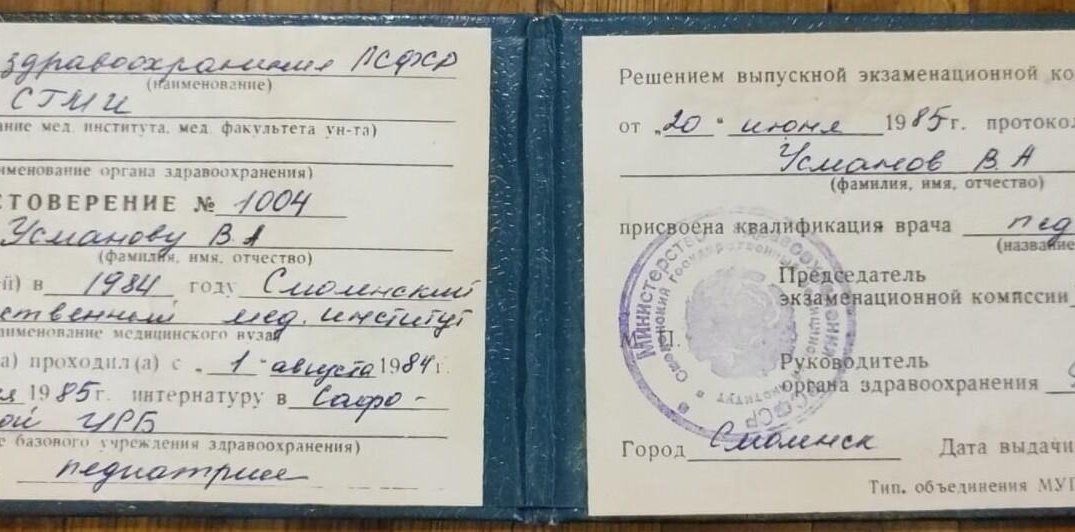 здравоохранения РСФСР
(наименование)
СТМИ
ние мед. института, мед. факультета ун-та)
именование органа здравоохранения)
СТОВЕРЕНИЕ № 1004
Усманову В А
(фамилия, имя, отчество)
й) в 1984 году Смоленский
ственный мед. институт
аименование медицинского вуза)
а) проходил(а) с „ 1 " августа 1984 г.
я 1985 г. интернатуру в Сафо-
ой ЦРБ
е базового учреждения здравоохранения)
педиатрии
Решением выпускной экзаменационной ко
от „ 20 " июня 1985 г. протокол
Усманов В. А
(фамилия, имя, отчество)
присвоена квалификация врача пед
(название
Председатель
экзаменационной комиссии
М. П.
Руководитель
органа здравоохранения
Город Смоленск Дата выдачи
Тип. объединения МУП
Министерство здравоохранения РСФСР
Смоленский Государственный медицинский институт